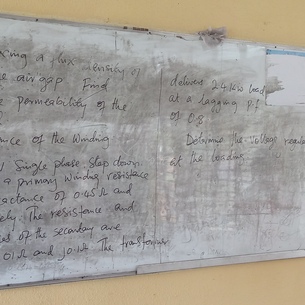 ring a flux density of
e air gap. Find
e permeability of the
ance of the winding
Single phase step down
a primary winding resistance
actance of 0.45Ω and
ely. The resistance and
es of the secondary are
01Ω and j0.1Ω. The transformer
delivers 24kW load
at a lagging P.f
of 0.8
Determine the voltage
at the